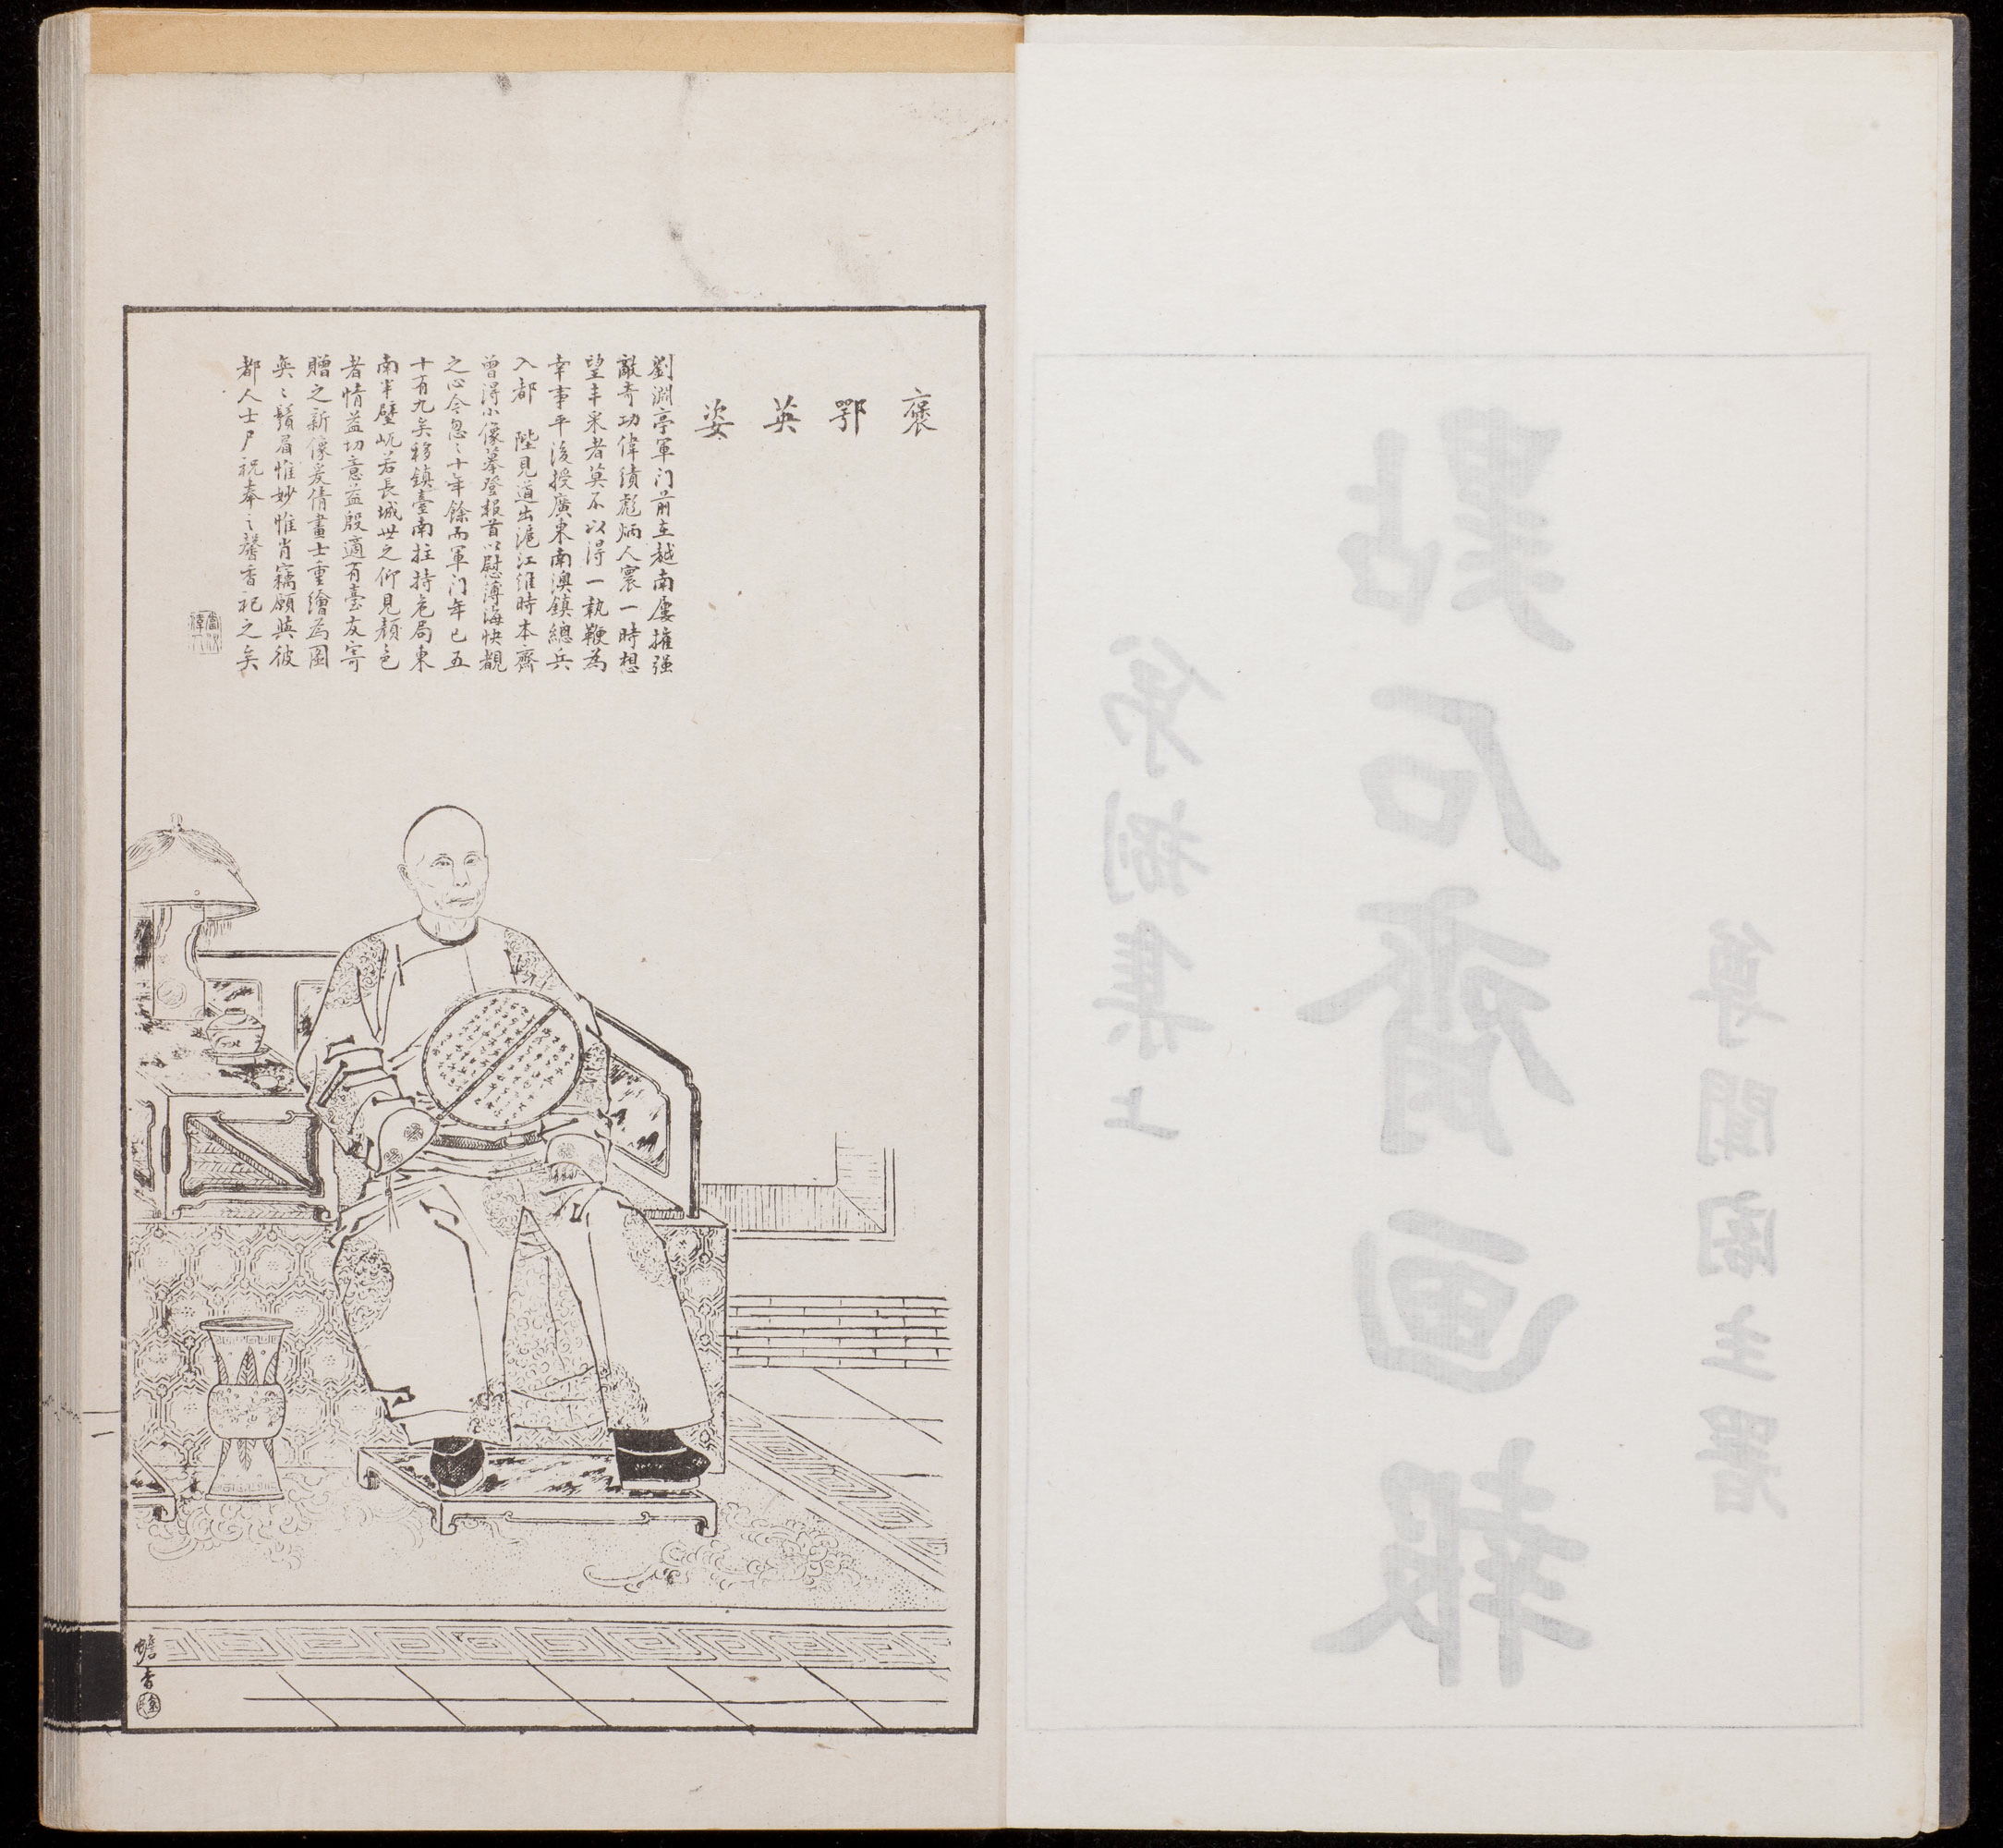 尊聞閣主署
點石齋画報
第捌集上
褒鄂英姿
劉淵亭軍门前在越南屢摧强
敵奇功偉績彪炳人寰一時想
望丰采者莫不以得一執鞭為
幸事平後授廣東南澳鎮總兵
入都陛見道出滬江維時本齋
曾得小像摹登報首以慰薄海快覩
之心今忽〻十年餘而軍门年已五
十有九矣移鎮臺南拄持危局東
南半壁屹若長城世之仰見顏色
者情益切意益殷適有臺友寄
贈之新像爰倩畫士重繪為圖
奕〻鬚眉惟妙惟肖竊願與彼
都人士尸祝奉之馨香祀之矣
蟾香